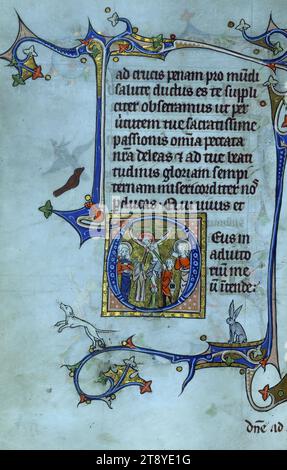 ad crucis penam pro mundi
salute ductus es te suppli
citer obsecramus ut per
uirtutem tue sacratissime
passionis omnia peccata
nr̄a deleas & ad tue beati
tudinis gloriam sempi
ternam misericorditer nos
perducas. Qui uiuis et
Deus in
adiuto
riū me
ū intende
dñe ad
alamy
Image ID: 2T8YE1G
www.alamy.com